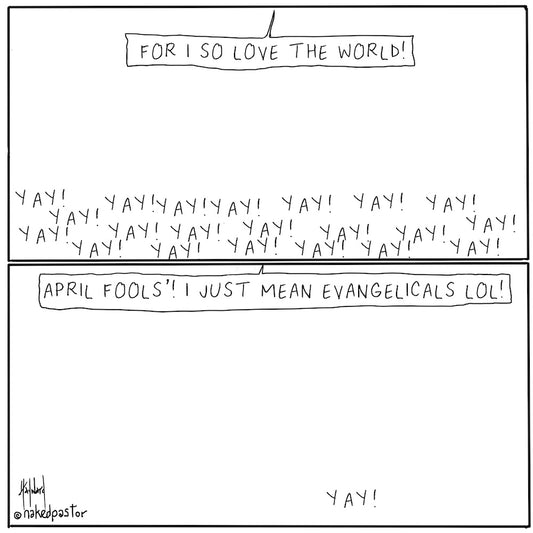 FOR I SO LOVE THE WORLD!
YAY! YAY! YAY! YAY! YAY! YAY! YAY!
YAY! YAY!
YAY! YAY! YAY! YAY! YAY! YAY!
YAY! YAY! YAY! YAY! YAY! YAY!
APRIL FOOLS'! I JUST MEAN EVANGELICALS LOL!
YAY!
©nakedpastor